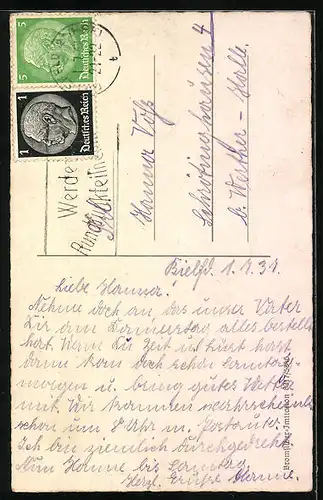 5 5
Deutsches Reich
1
Deutsches Reich
Werde
Rundfunkteilnehmer
Hanna Volz
Schröttinghausen 4
b. Werther - Halle
Bielfd. 1.7.37.
Liebe Hanna!
Nehme doch an, das unser Vater
Dir am Donnerstag alles bestellt
hat. Wenn Du Zeit u. Lust hast
dann kom doch schon Sonntag
morgen u. bring gutes Wetter
mit. Wir kommen wahrscheinl.
schon um 8 Uhr m. Postauto.
Ich bin ziemlich durchgedreht.
Nun Hanne bis Sonntag
Herzl. Grüße
Bromsilber-Imitation